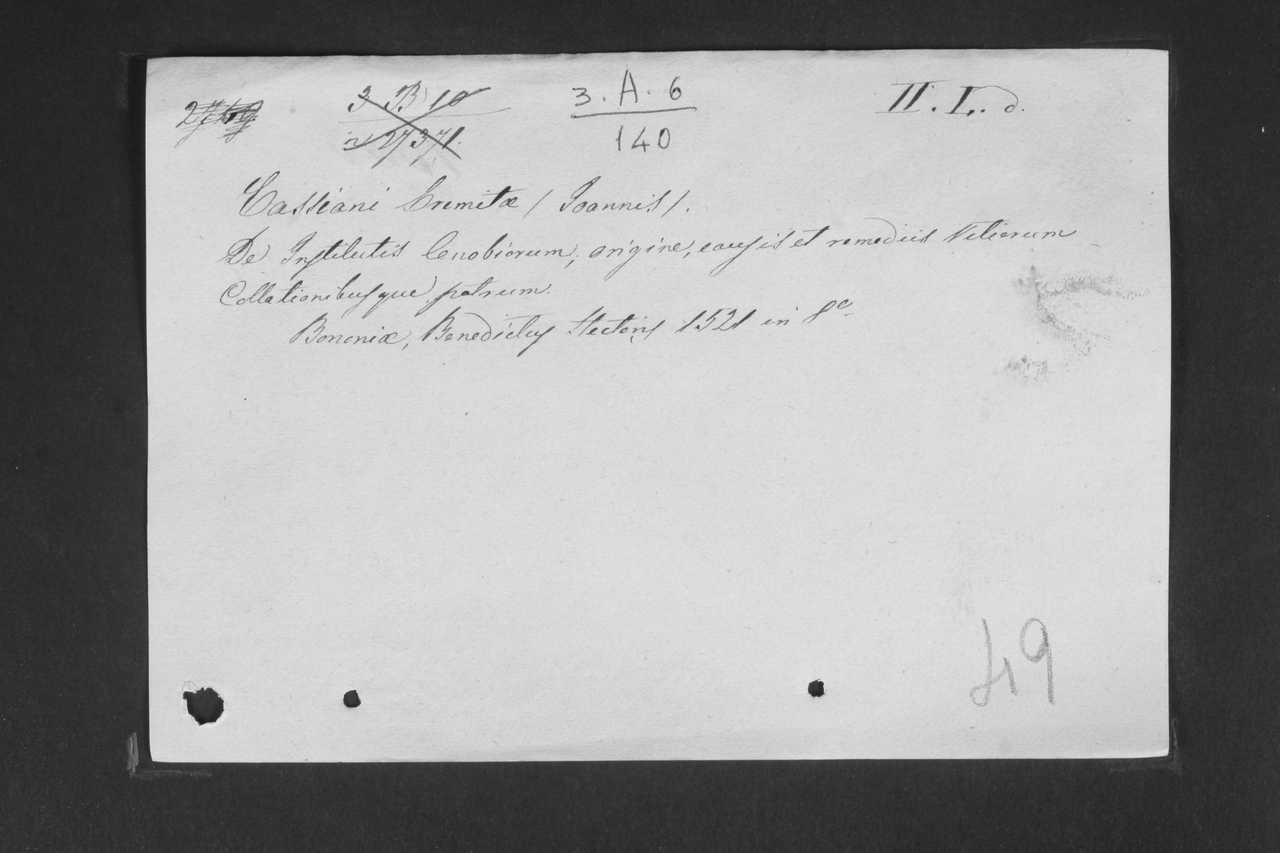 3 B 10 3. A. 6 II. I. d.
27371. 140
Cassiani Eremitæ (Joannis).
De Institutis Cenobiorum, origine, causis et remediis Vitiorum
Collationibusque patrum.
Bononiæ, Benedictus Hectoris 1521 in 8º.
49